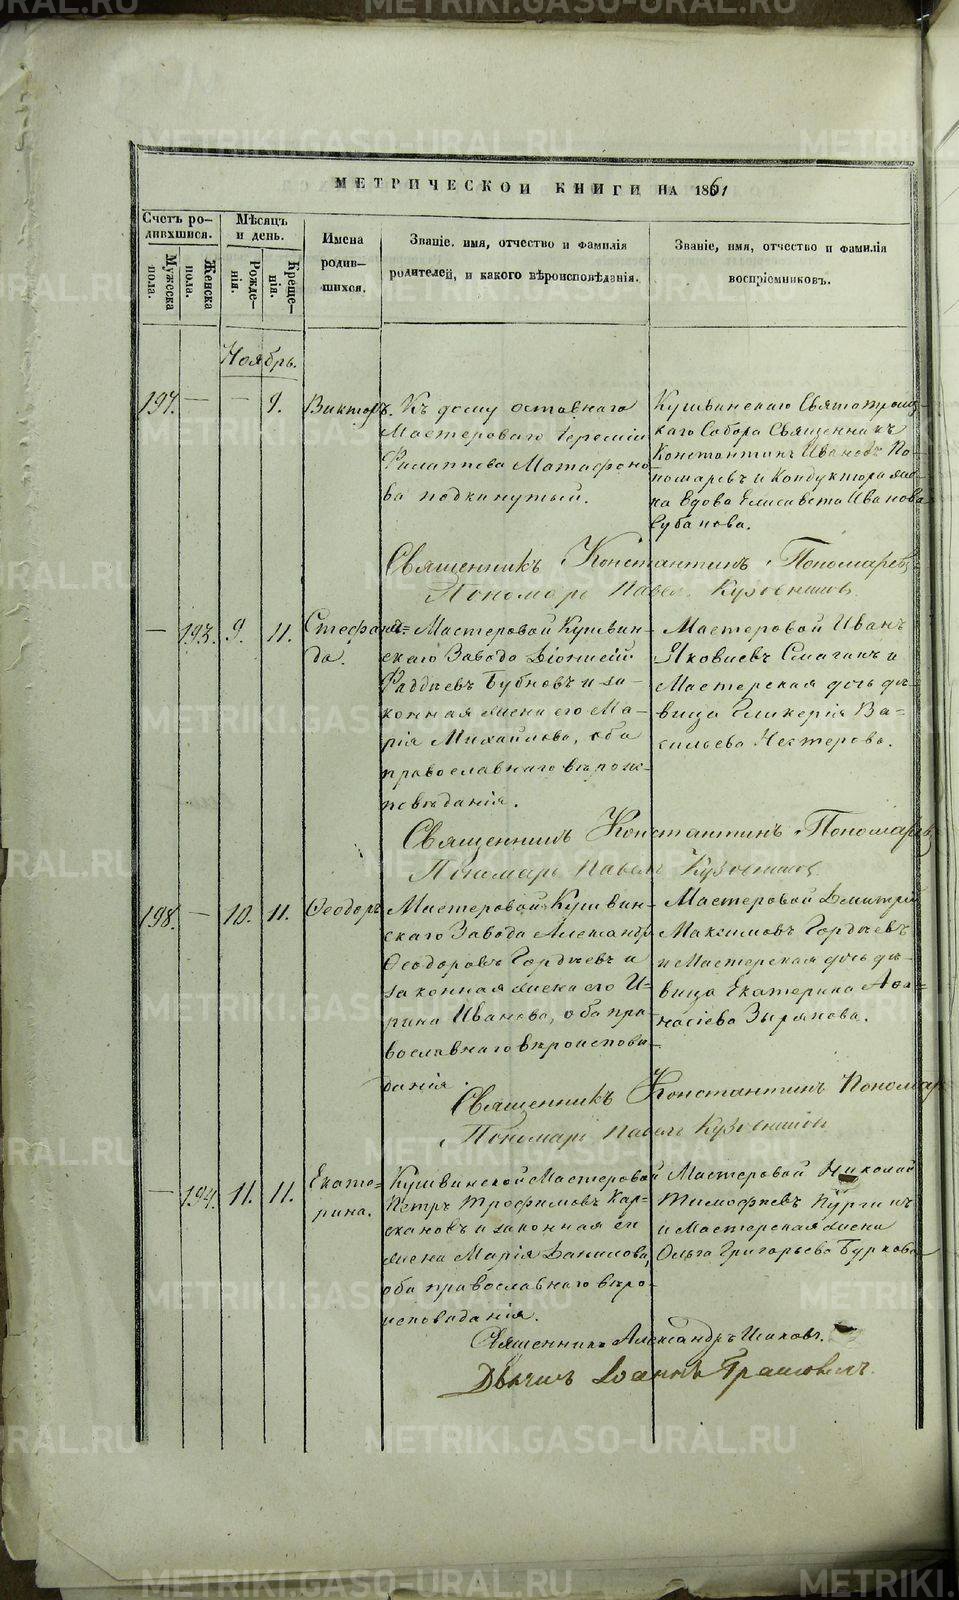 METRIKI.GASO-URAL.RU
МЕТРИЧЕСКОЙ КНИГИ НА 1861
Счетъ ро-
дившихся.
Мужеска
пола.
Женска
пола.
Мѣсяцъ
и день.
Рожде-
нія.
Креще-
нія.
Имена
родив-
шихся.
Званіе, имя, отчество и фамилія
родителей, и какого вѣроисповѣданія.
Званіе, имя, отчество и фамилія
воспріемниковъ.
Ноябрь.
197. — — 9. Викторъ.
Къ дому отставнаго
Мастероваго Іеремiи
Филиппова Матафоно-
ва подкинутый.
Кушвинскаго Святотроиц-
каго Собора Священникъ
Константинъ Ивановъ По-
номаревъ и Кондуктора же-
на вдова Елисавета Иванова
Губанова.
Священникъ Константинъ Пономаревъ
Пономарь Павелъ
— 193. 9. 11. Стефани-
да.
Мастеровой Кушвин-
скаго Завода Діонисій
Фаддѣевъ Бубновъ и за-
конная жена его Ма-
рія Михайлова, оба
православнаго вѣроис-
повѣданія.
Мастеровой Иванъ
Яковлевъ Смагинъ и
Мастерская дочь дѣ-
вица Гликерія Ва-
сильева Нестерова.
Священникъ Константинъ Пономаревъ
Пономарь Павелъ
198. — 10. 11. Ѳеодоръ
Мастеровой Кушвин-
скаго Завода Александръ
Ѳеодоровъ Гордѣевъ и
законная жена его И-
рина Иванова, оба пра-
вославнаго вѣроисповѣ-
данія.
Мастеровой Димитрій
Максимовъ Гордѣевъ
и Мастерская дочь дѣ-
вица Екатерина Аѳа-
насіева Зырянова.
Священникъ Константинъ Пономар
Пономарь Павелъ
— 194. 11. 11. Екате-
рина.
Кушвинской Мастеровой
Петръ Трофимовъ Кар-
скановъ и законная ея
жена Марія Данилова,
оба православнаго вѣро-
исповѣданія.
Мастеровой Николай
Тимофѣевъ
и Мастерская жена
Ольга Григорьева Буркова
Священникъ Александръ
Дьячекъ Іоаннъ